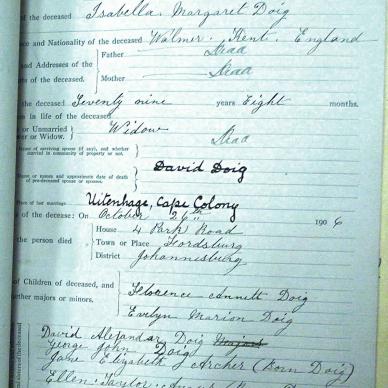 of the deceased Isabella Margaret Doig
ce and Nationality of the deceased Walmer. Kent. England
and Addresses of the Father Dead
ts of the deceased. Mother Dead
the deceased Seventy nine years Eight months.
on in life of the deceased
or Unmarried Widow
er or Widow. Dead
Name of surviving spouse (if any), and whether
married in community of property or not.
David Doig
Name or names and approximate death of
pre-deceased spouse or spouses.
Place of her marriage Uitenhage, Cape Colony
of the decease: On October 26th 1906
House 4 Park Road
the person died Town or Place Fordsburg
District Johannesburg
of Children of deceased, and
ther majors or minors.
Florence Annett Doig
Evelyn Marion Doig
David Alexandar Doig Majors
George John Doig
Jane Elizabeth Archer (Born Doig)
Ellen Taylor